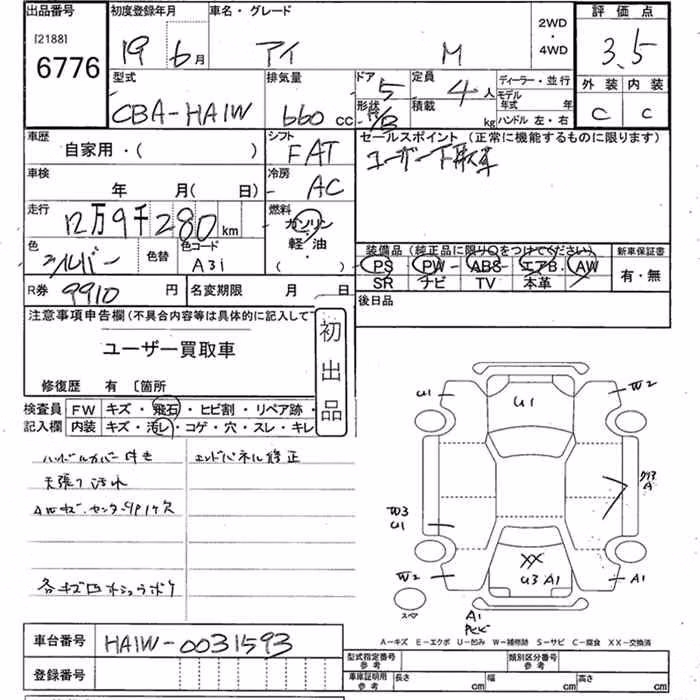 出品番号 初度登録年月 車名・グレード 2WD ・ 4WD 評価点
[2188]
6776 19 6月 アイ M 3.5
型式 排気量 ドア 5 定員 4人 ディーラー・並行 外装 内装
CBA-HA1W 660cc 形状 積載 kg モデル年式 年 C C
ハンドル 左・右
車歴 シフト セールスポイント (正常に機能するものに限ります)
自家用・( ) FAT ユーザー下取車
車検 冷房
年 月( 日) AC
走行 燃料
12万9千280km ガソリン
軽・油
( )
色 シルバー 色替 色コード A31
装備品(純正品に限り○をつけてください) 新車保証書
PS PW ABS エアB. AW 有・無
SR ナビ TV 本革
R券 9910 円 名変期限 月 日 後日品
注意事項申告欄(不具合内容等は具体的に記入して下 初出品
ユーザー買取車
修復歴 有 〔箇所
検査員 FW キズ・飛石・ヒビ割・リペア跡・
記入欄 内装 キズ・汚レ・コゲ・穴・スレ・キレ
ハンドルカバー付き エンドパネル修正
天張り汚れ
各キズ凹
U1 U1 W2
W3
U1
クリア
A
XX
W2 U3 A1 A1
スペア
A1
A-キズ E-エクボ U-凹み W-補修跡 S-サビ C-腐食 XX-交換済
車台番号 HA1W-0031593
登録番号
型式指定番号 参考 類別区分番号 参考
車庫証明用 参考 長さ cm 幅 cm 高さ cm